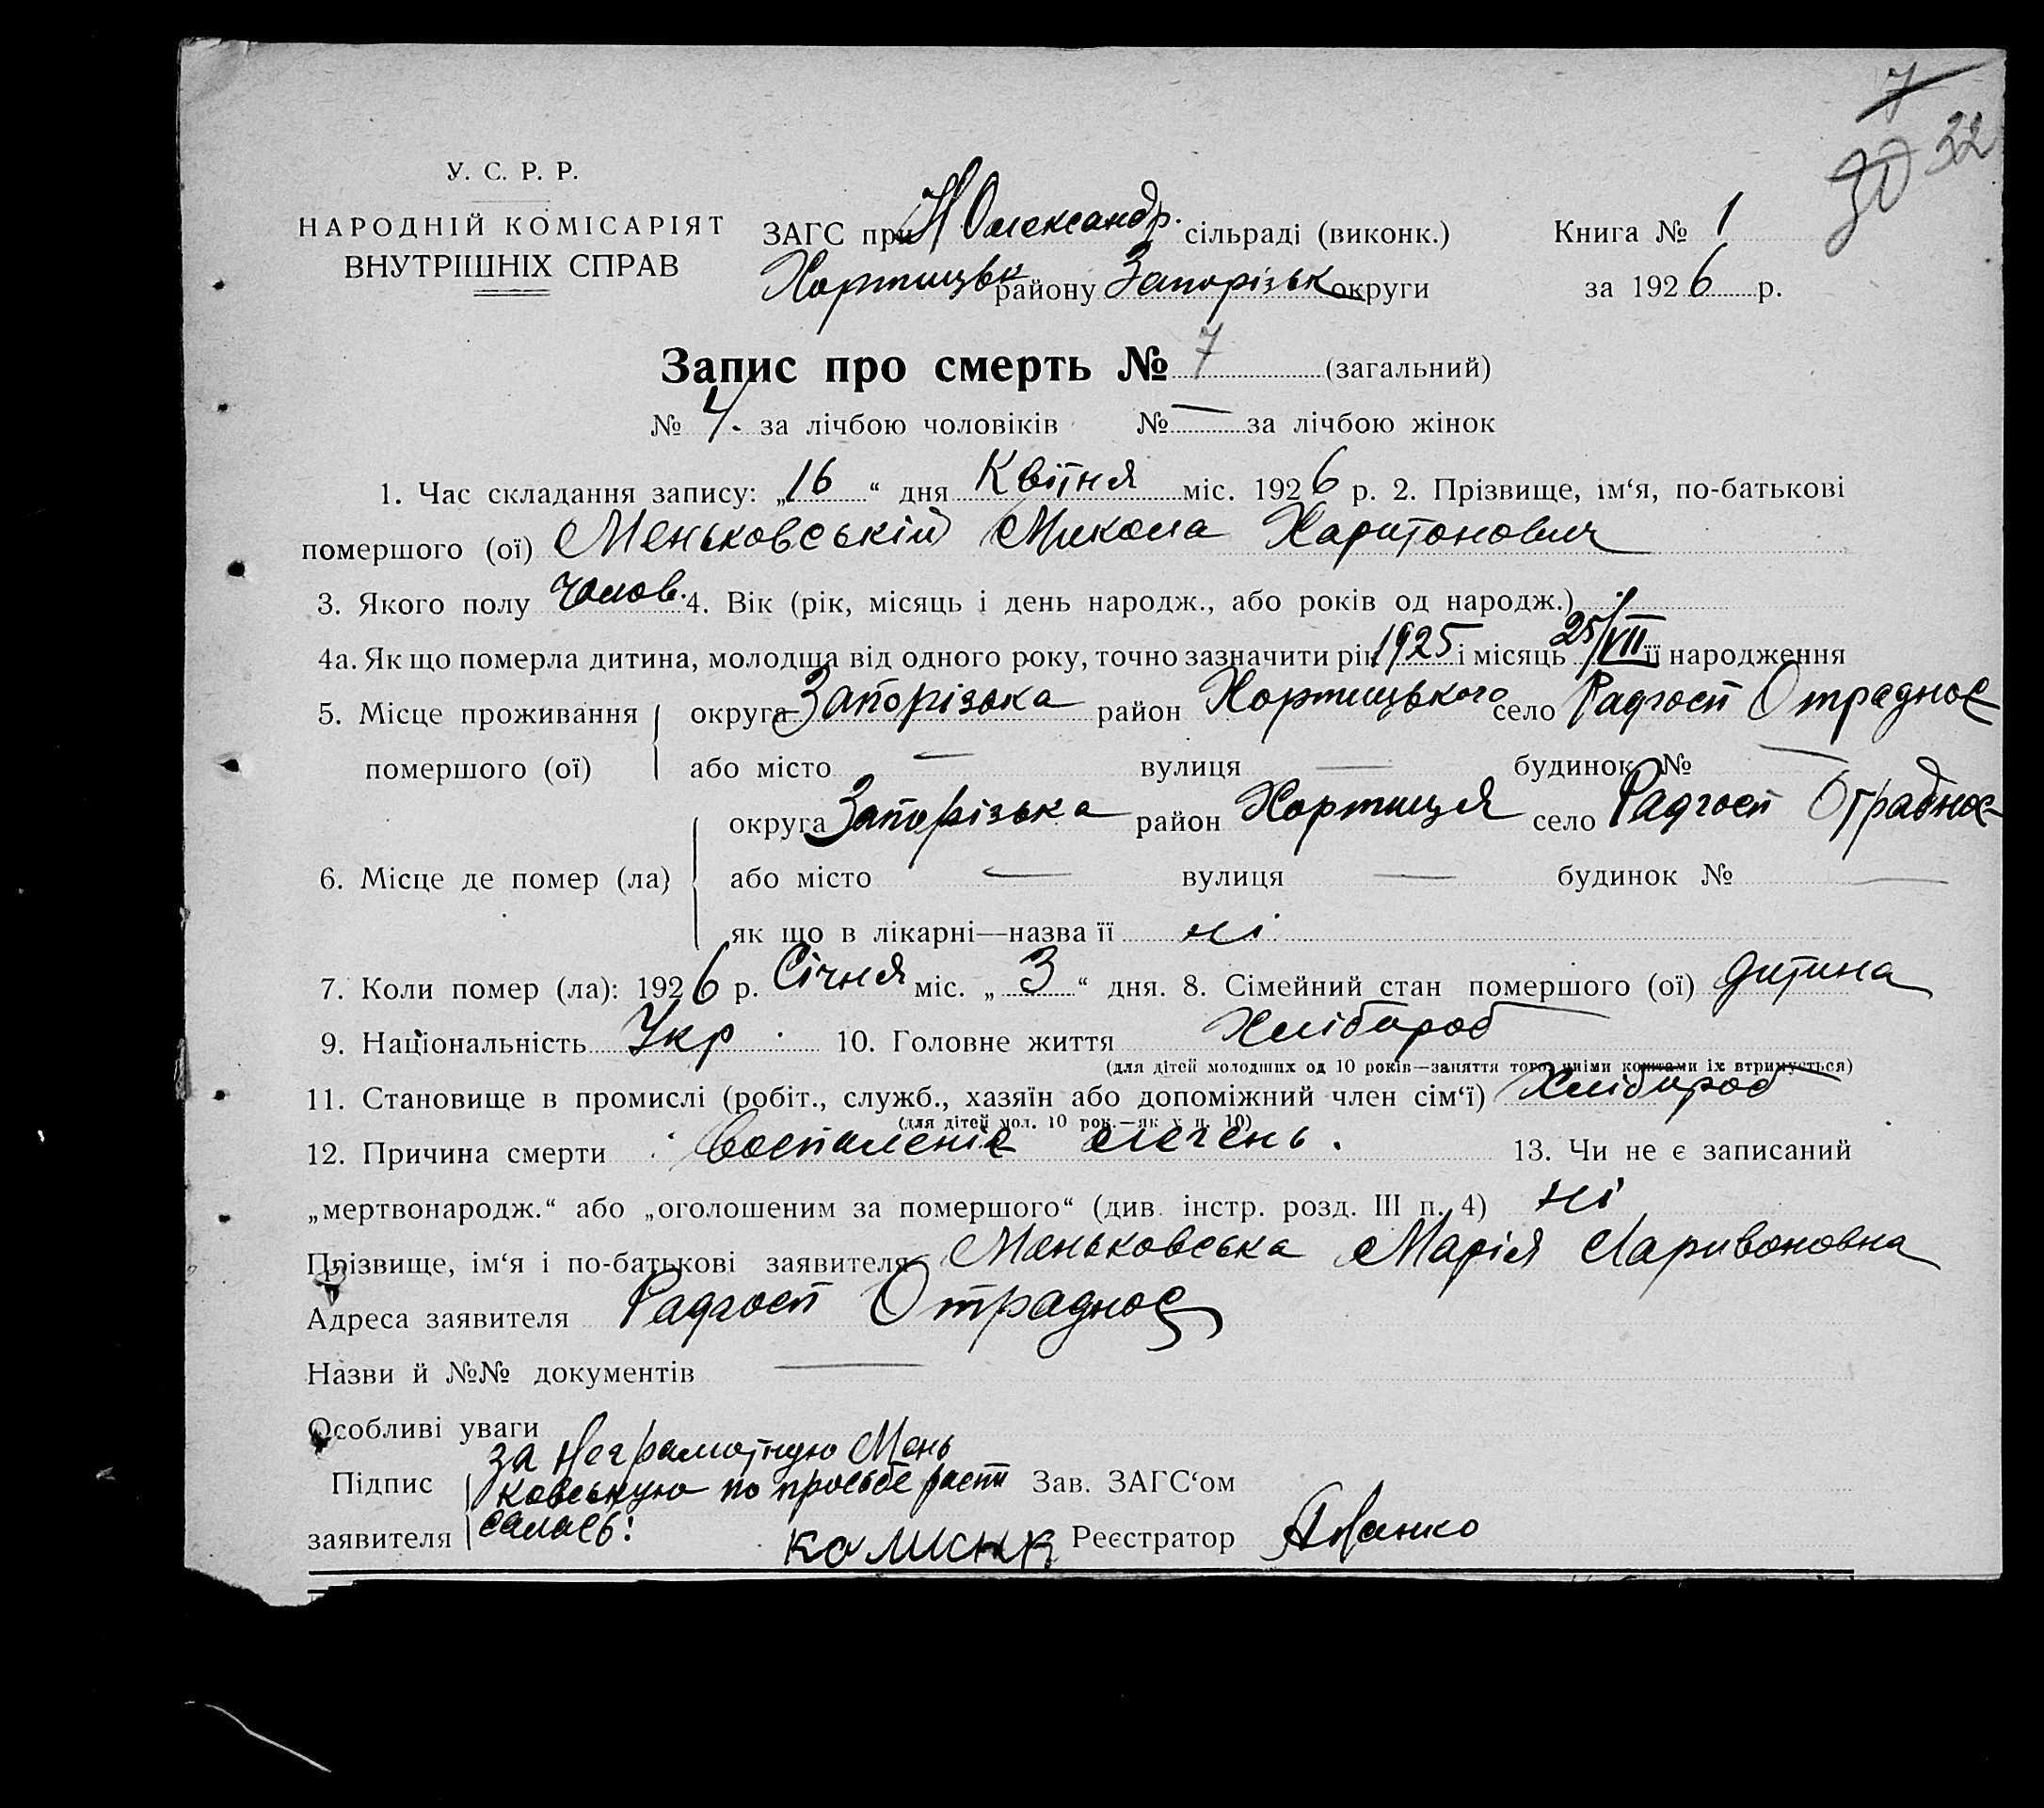 7
30 32
У. С. Р. Р.
НАРОДНІЙ КОМІСАРІЯТ
ВНУТРІШНІХ СПРАВ
ЗАГС при Н Олександр. сільраді (виконк.)
Хортицьк району Запорізьк округи
Книга № 1
за 1926 р.
Запис про смерть № 7 (загальний)
№ 4. за лічбою чоловіків № — за лічбою жінок
1. Час складання запису: „16“ дня Квітня міс. 1926 р. 2. Прізвище, ім‘я, по-батькові
помершого (ої) Меньковській Микола Харитонович
3. Якого полу Чолов. 4. Вік (рік, місяць і день народж., або років од народж.)
4а. Як що померла дитина, молодша від одного року, точно зазначити рік 1925 і місяць 25/VII її народження
5. Місце проживання помершого (ої) округа Запорізька район Хортицького село Радгосп Отрадноє
або місто — вулиця — будинок № —
6. Місце де помер (ла) округа Запорізька район Хортиця село Радгосп Отрадноє
або місто — вулиця — будинок № —
як що в лікарні—назва її ні
7. Коли помер (ла): 1926 р. Січня міс. „3“ дня. 8. Сімейний стан помершого (ої) дитина
9. Національність Укр. 10. Головне життя Хлібороб
(для дітей молодших од 10 років—заняття того, чиїми коштами їх втримується)
11. Становище в промислі (робіт., служб., хазяїн або допоміжний член сім‘ї) Хлібороб
(для дітей мол. 10 рок.—як у п. 10)
12. Причина смерти Воспаленіє 13. Чи не є записаний
„мертвонародж.“ або „оголошеним за помершого“ (див. інстр. розд. III п. 4) ні
Прізвище, ім‘я і по-батькові заявителя Меньковська Марія Ларивоновна
Адреса заявителя Радгосп Отрадноє
Назви й №№ документів —
Особливі уваги
Підпис заявителя за Неграмотную Мень
ковськую по просьбе распи
салась:
Зав. ЗАГС‘ом
Реєстратор